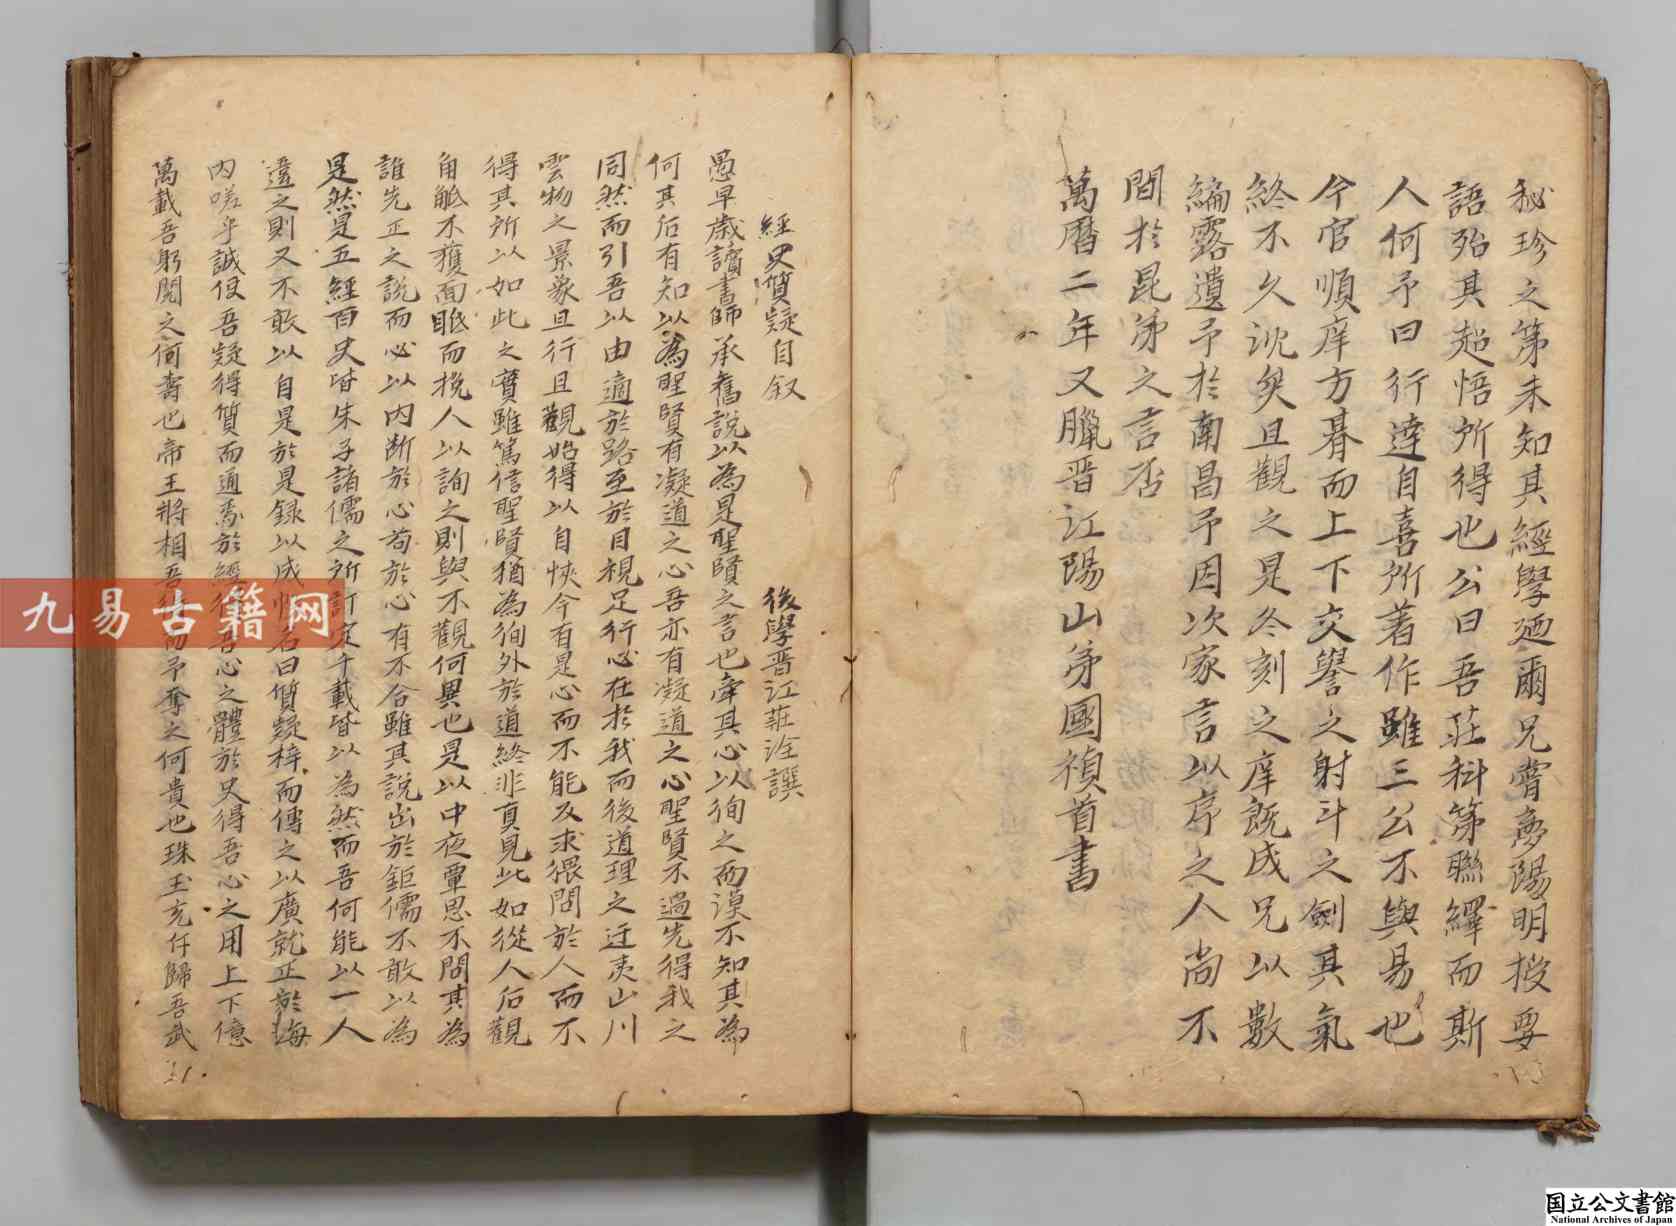 秘珍之第未知其經學迺爾兄嘗夢陽明授要
語殆其超悟所得也公曰吾莊科第聯繹而斯
人何予曰行達自喜所著作雖三公不與易也
今官順庠方碁而上下交譽之射斗之劍其氣
終不久沈矣且觀之是冬刻之庠既成兄以數
編露遺予於南昌予因次家言以序之人尚不
間於昆弟之言否
萬曆二年又臘晋江陽山弟國禎首書
經史質疑自叙
後學晋江莊詮譔
愚早歲讀書師承舊說以為是聖賢之言也牽其心以徇之而漠不知其為
何其后有知以為聖賢有凝道之心吾亦有凝道之心聖賢不過先得我之
同然而引吾以由適於路至於目視足行心在於我而後道理之迂夷山川
雲物之景象且行且觀始得以自快今有是心而不能反求猥問於人而不
得其所以如此之實雖篤信聖賢猶為徇外於道終非真見此如從人后觀
角觝不獲面眡而挽人以詢之則與不觀何異也是以中夜覃思不問其為
誰先正之說而必以内断於心苟於心有不合雖其說出於鉅儒不敢以為
是然是五經百史皆朱子諸儒之所訂定千載皆以為然而吾何能以一人
違之則又不敢以自是於是録以成帙名曰質疑梓而傳之以廣就正於海
内嗟乎誠使吾疑得質而通焉於經得吾心之體於史得吾心之用上下億
萬載吾躬閱之何壽也帝王將相吾得而予奪之何貴也珠玉充仟歸吾武
九易古籍网
国立公文書館
National Archives of Japan